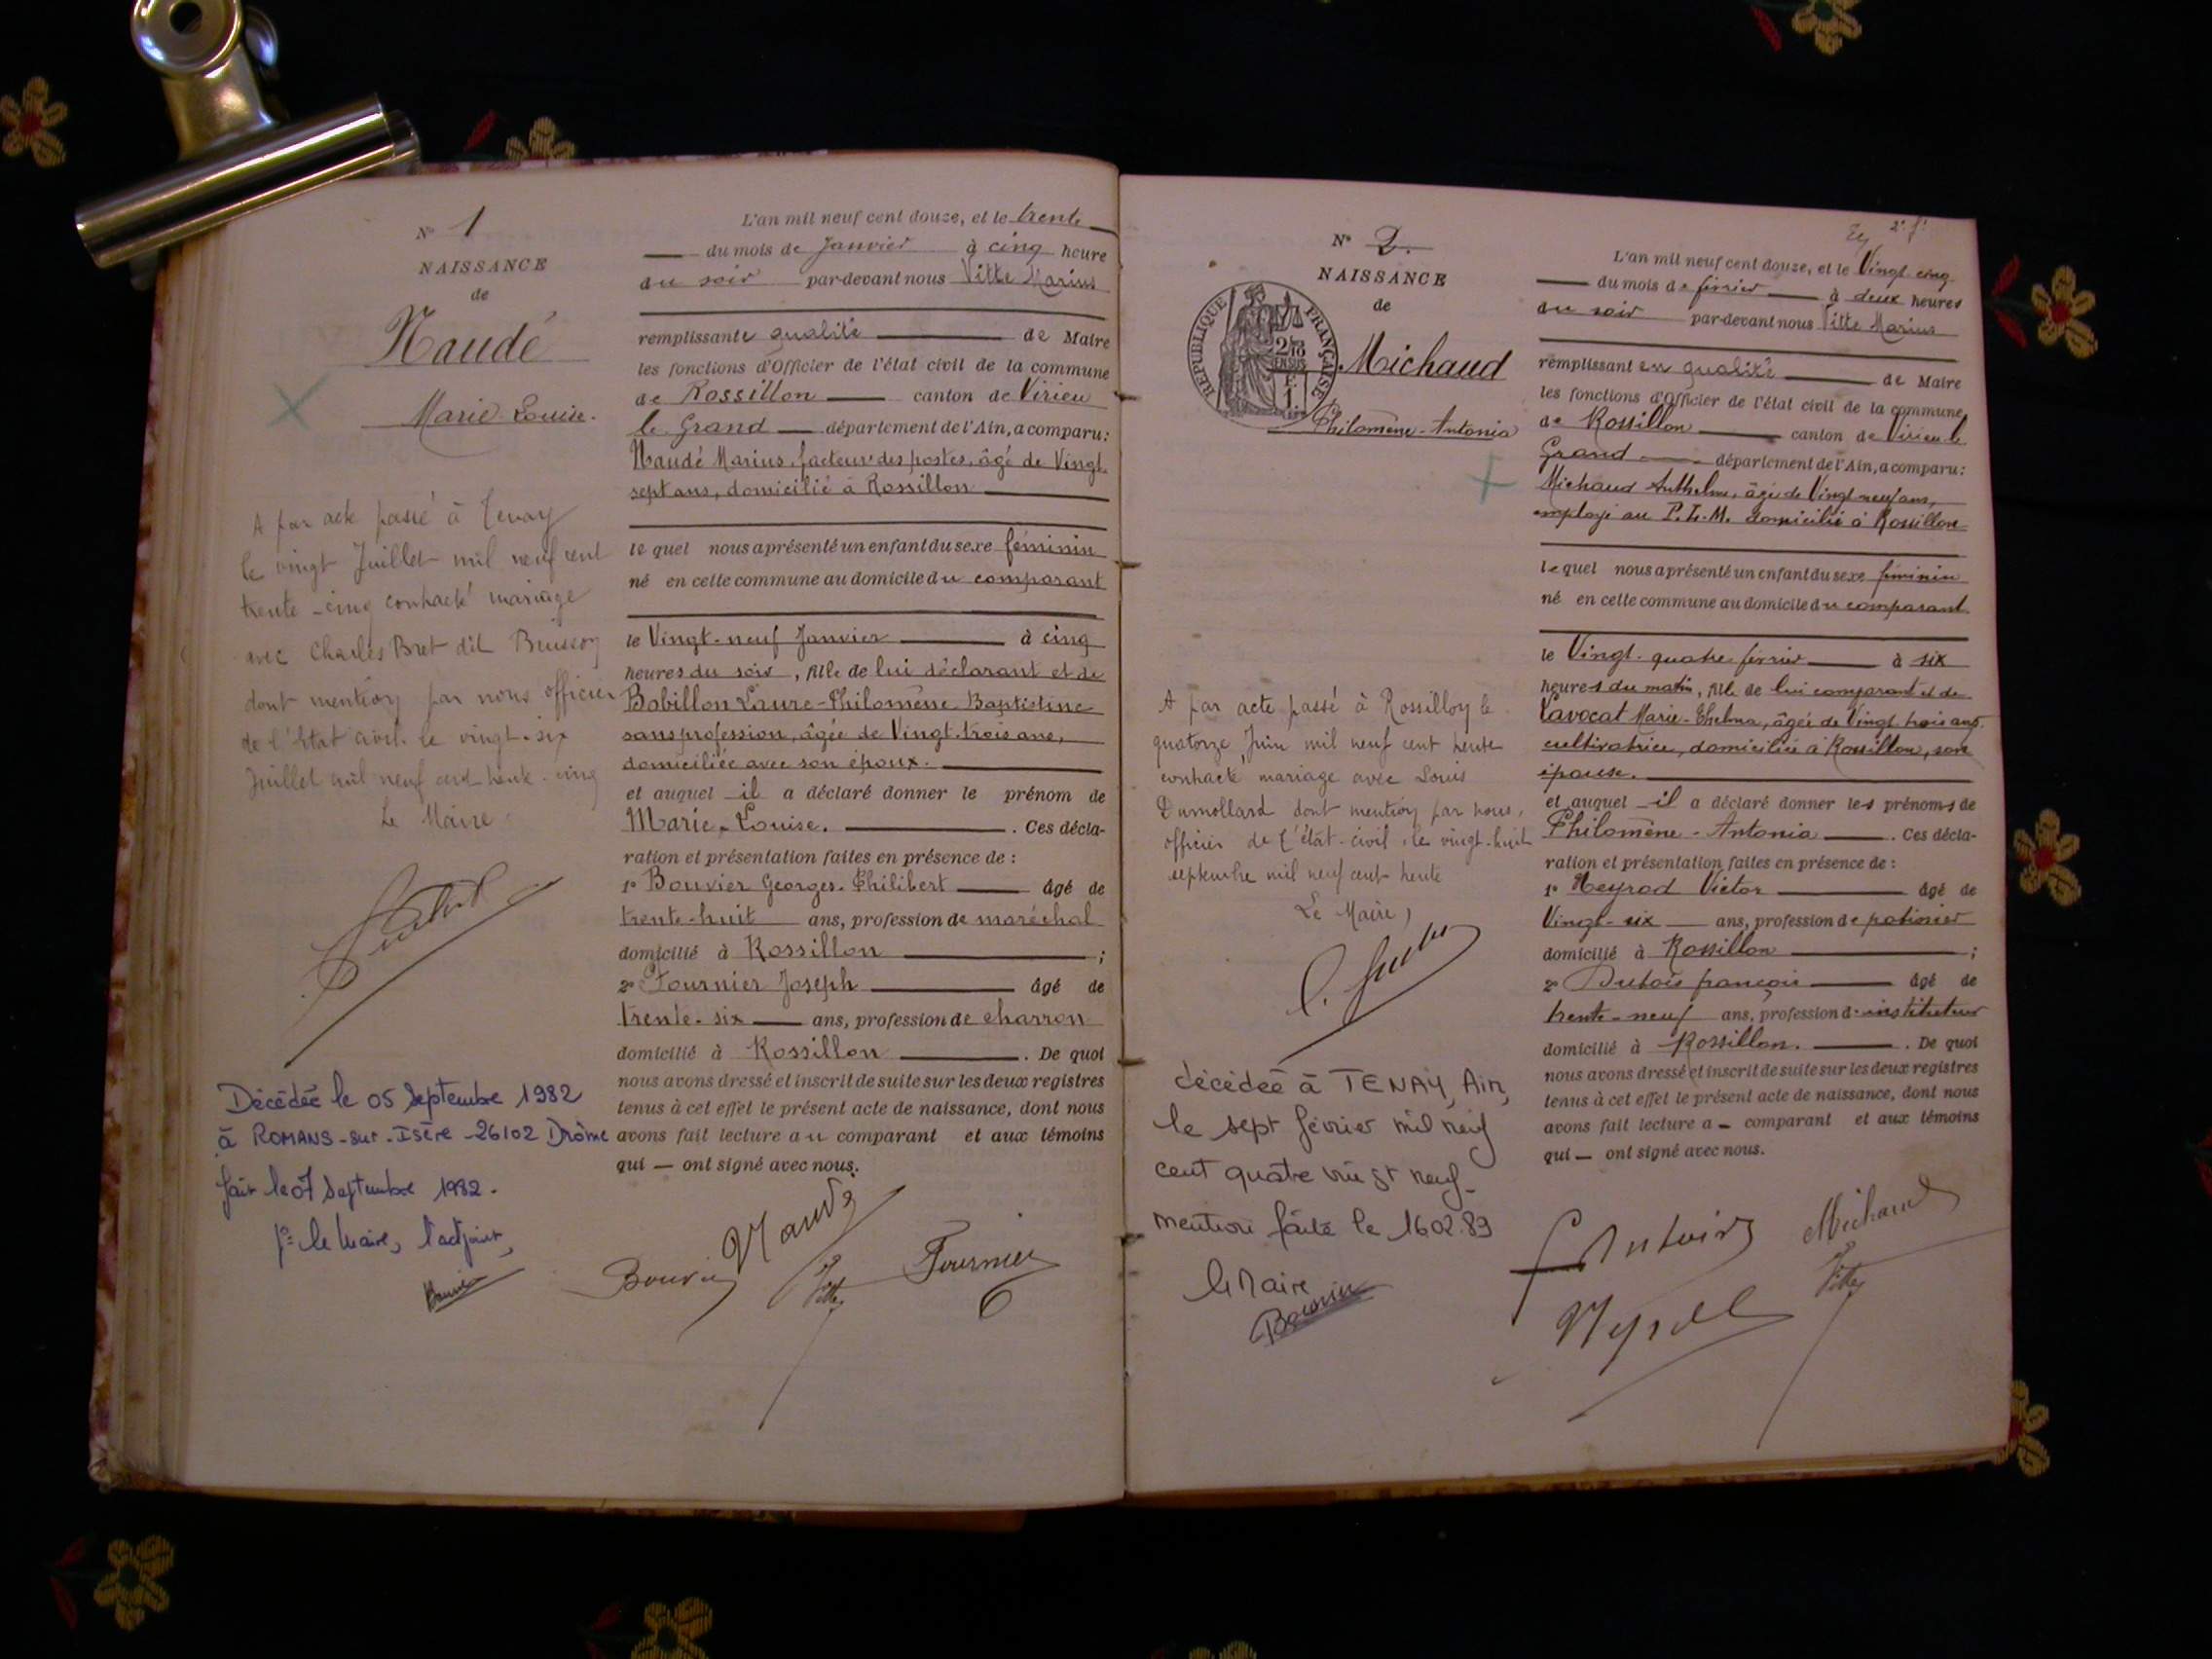 N° 1
NAISSANCE
de
Naudé
Marie Louise.
A par acte passé à Tenay
le vingt Juillet mil neuf cent
trente-cinq contracté mariage
avec Charles Bret dit Buisson
dont mention par nous officier
de l'état civil le vingt-six
Juillet mil neuf cent trente-cinq
Le Maire
Décédée le 05 Septembre 1982
à ROMANS-sur-Isère -26102 Drôme
fait le 07 Septembre 1982.
Pr le Maire, l'adjoint,
L'an mil neuf cent douze, et le trente
du mois de Janvier à cinq heure
du soir par-devant nous Vitte Marius
remplissant qualité de Maire
les fonctions d'Officier de l'état civil de la commune
de Rossillon canton de Virieu
le Grand département de l'Ain, a comparu:
Naudé Marius, facteur des postes, âgé de Vingt-
sept ans, domicilié à Rossillon
lequel nous a présenté un enfant du sexe féminin
né en cette commune au domicile du comparant
le Vingt-neuf Janvier à cinq
heures du soir, fille de lui déclarant et de
Bobillon Laure-Philomène Baptistine
sans profession, âgée de Vingt-trois ans,
domiciliée avec son époux.
et auquel il a déclaré donner le prénom de
Marie-Louise. Ces décla-
ration et présentation faites en présence de :
1° Bouvier Georges-Philibert âgé de
trente-huit ans, profession de maréchal
domicilié à Rossillon ;
2° Fournier Joseph âgé de
trente-six ans, profession de charron
domicilié à Rossillon . De quoi
nous avons dressé et inscrit de suite sur les deux registres
tenus à cet effet le présent acte de naissance, dont nous
avons fait lecture au comparant et aux témoins
qui — ont signé avec nous.
Naudé
Bouvier Vitte Fournier
2e f!
N° 2.
NAISSANCE
de
RÉPUBLIQUE FRANÇAISE
Michaud
Philomène-Antonia
A par acte passé à Rossillon le
quatorze Juin mil neuf cent trente
contracté mariage avec Louis
Dumollard dont mention par nous,
officier de l'état-civil, le vingt-huit
septembre mil neuf cent trente
Le Maire,
décédée à TENAY, Ain,
le sept février mil neuf
cent quatre vingt neuf-
mention faite le 16.02.89
le Maire
L'an mil neuf cent douze, et le Vingt cinq
du mois de février à deux heures
du soir par-devant nous Vitte Marius
remplissant en qualité de Maire
les fonctions d'Officier de l'état civil de la commune
de Rossillon canton de Virieu-le
Grand département de l'Ain, a comparu:
Michaud Anthelme, âgé de Vingt neuf ans,
employé au P.L.M. domicilié à Rossillon
lequel nous a présenté un enfant du sexe féminin
né en cette commune au domicile du comparant
le Vingt-quatre février à six
heures du matin, fille de lui comparant et de
Lavocat Marie-Thelma, âgée de Vingt trois ans,
cultivatrice, domiciliée à Rossillon, son
épouse.
et auquel il a déclaré donner les prénoms de
Philomène-Antonia . Ces décla-
ration et présentation faites en présence de :
1° Neyrod Victor âgé de
Vingt-six ans, profession de
domicilié à Rossillon ;
2° Dubois françois âgé de
trente-neuf ans, profession d'instituteur
domicilié à Rossillon. . De quoi
nous avons dressé et inscrit de suite sur les deux registres
tenus à cet effet le présent acte de naissance, dont nous
avons fait lecture a — comparant et aux témoins
qui — ont signé avec nous.
Michaud
Vitte